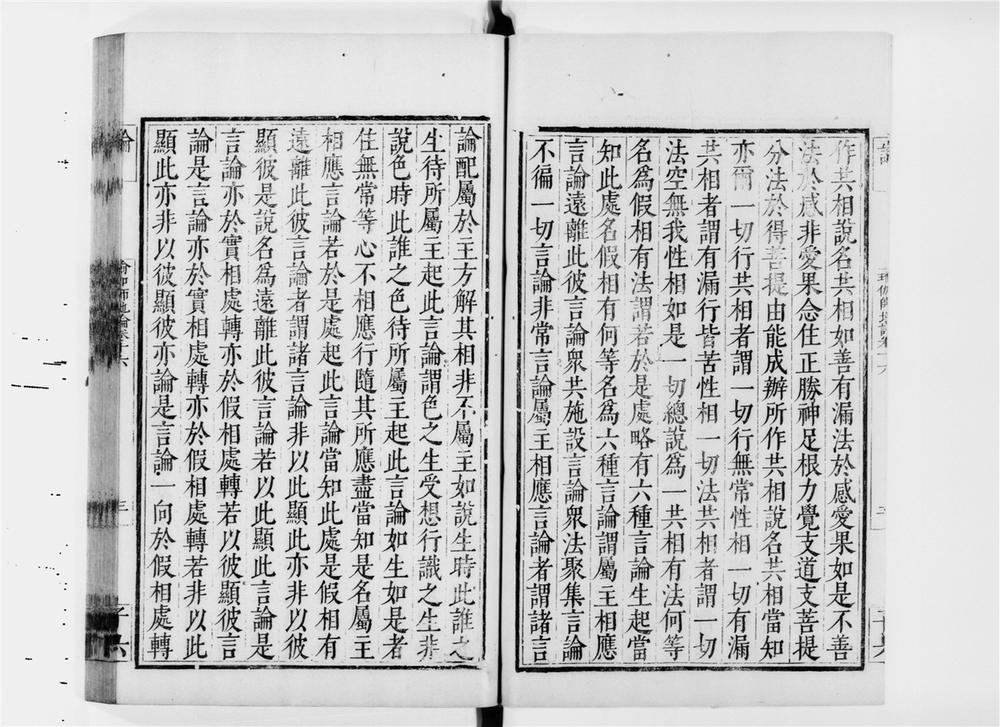 作共相說名共相如善有漏法於感愛果如是不善
法於感非愛果念住正勝神足根力覺支道支菩提
分法於得菩提由能成辦所作共相說名共相當知
亦爾一切行共相者謂一切行無常性相一切有漏
共相者謂有漏行皆苦性相一切法共相者謂一切
法空無我性相如是一切總說爲一共相有法何等
名爲假相有法謂若於是處略有六種言論生起當
知此處名假相有何等名爲六種言論謂屬主相應
言論遠離此彼言論衆共施設言論衆法聚集言論
不徧一切言論非常言論屬主相應言論者謂諸言
論配屬於主方解其相非不屬主如說生時此誰之
生待所屬主起此言論謂色之生受想行識之生非
說色時此誰之色待所屬主起此言論如生如是老
住無常等心不相應行隨其所應盡當知是名屬主
相應言論若於是處起此言論當知此處是假相有
遠離此彼言論者謂諸言論非以此顯此亦非以彼
顯彼是說名爲遠離此彼言論若以此顯此言論是
言論亦於實相處轉亦於假相處轉若以彼顯彼言
論是言論亦於實相處轉亦於假相處轉若非以此
顯此亦非以彼顯彼亦論是言論一向於假相處轉